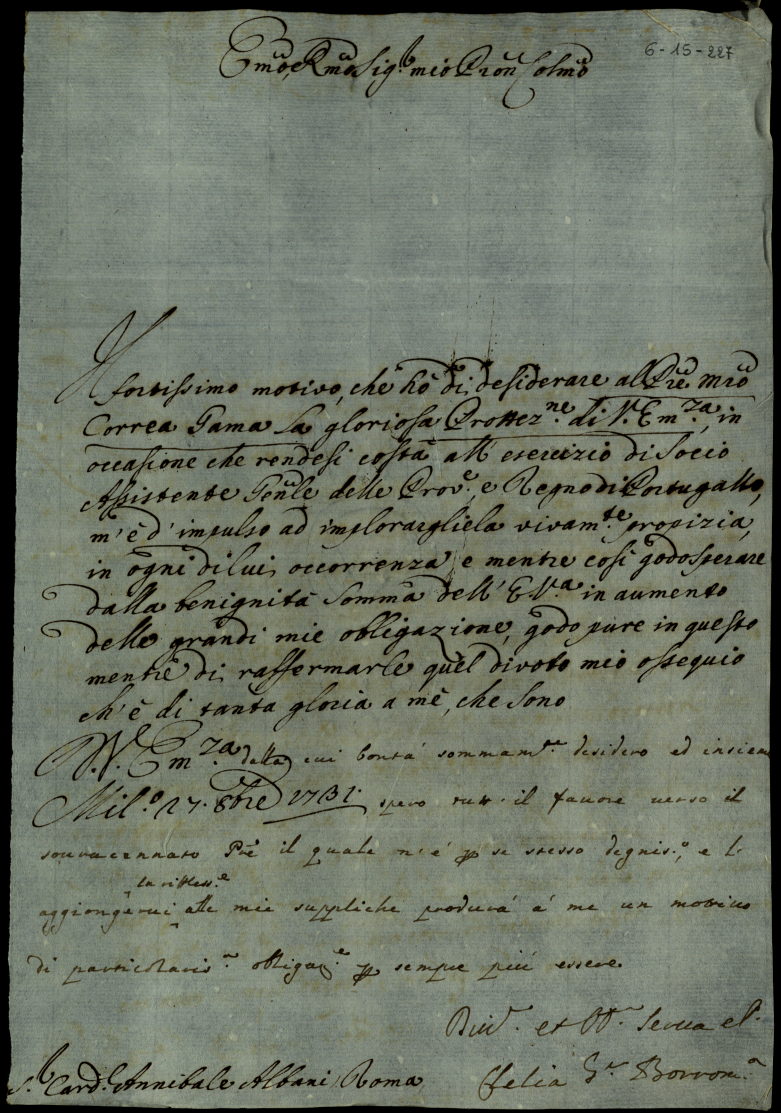 6-15-227
Emō, e Rmō Sig.r mio Pron Colmō
Il fortissimo motivo, che hò di desiderare al Pre Mrō
Correa Gama la gloriosa Prottez.ne di V. Em.za, in
occasione che rendesi costà all' esercizio di Socio
Assistente Genle delle Prov.e, e Regno di Portugallo,
m' è d' impulso ad implorargliela vivam.te propizia,
in ogni di lui occorrenza, e mentre così godo sperare
dalla benignità somma dell' E.V.a in aumento
delle grandi mie obligazione, godo pure in questo
mentre di raffermarle quel divoto mio ossequio
ch' è di tanta gloria a me, che sono
D. V. Em.za della cui bontà sommam.te desidero ed insieme
Mil.o 17. 8bre 1731. spero tutt' il favore verso il
souvracennato Pre il quale n' è p se stesso degnis.o, e l'
la rifless.e
aggiongervi alle mie suppliche produrà à me un motivo
di particolaris.a obligaz.e p sempre più essere
Div.a et Obb.a Serva
Clelia G.o Borrom.a
S.r Card.l Annibale Albani Roma